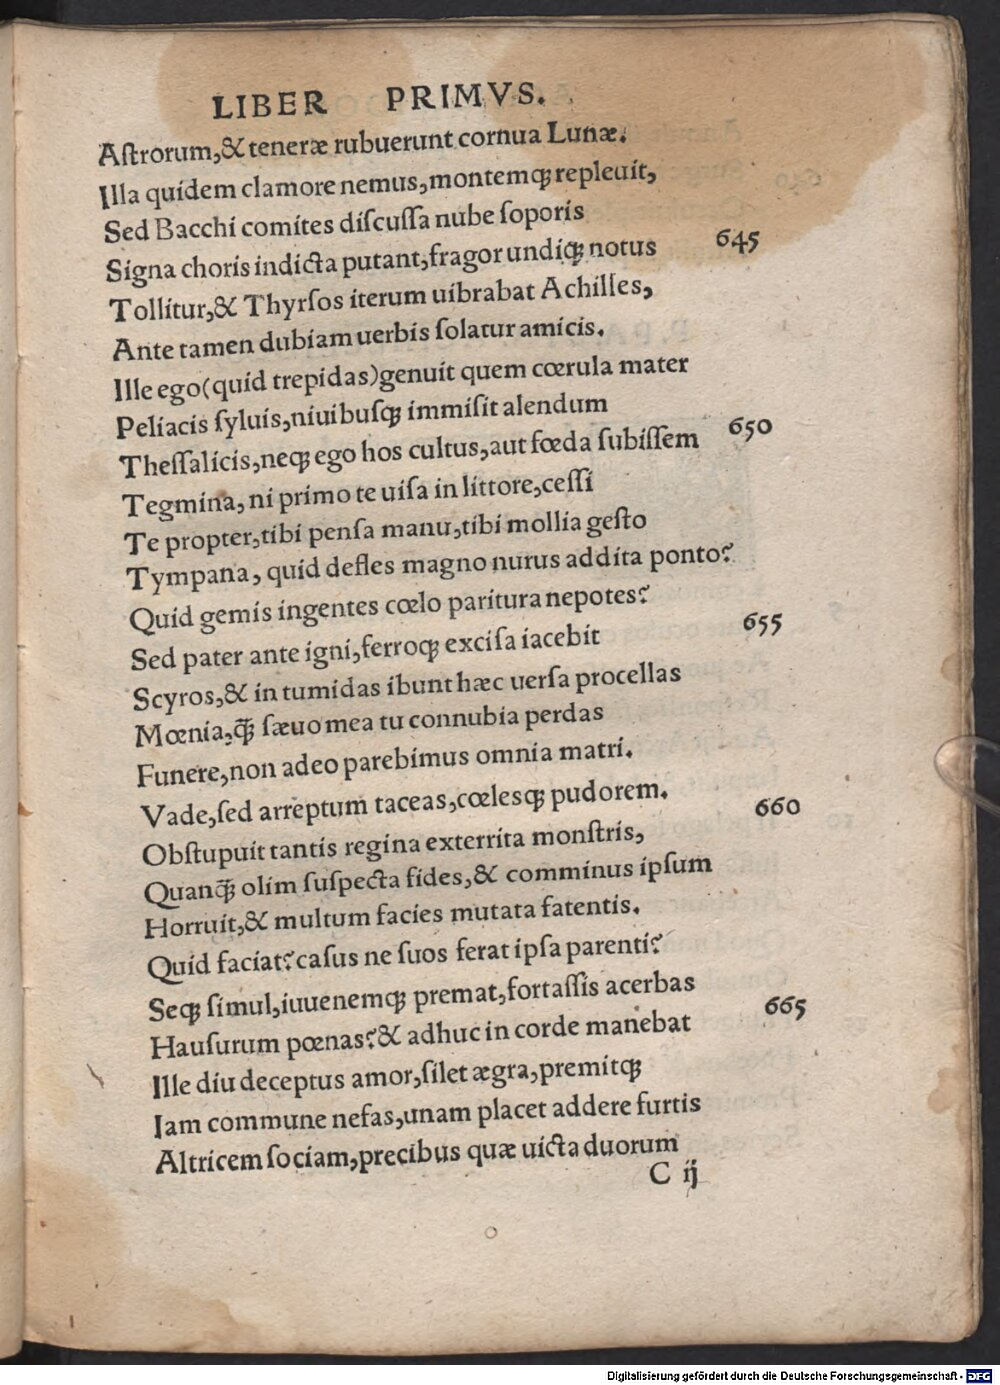 LIBER PRIMVS.
Aſtrorum,& teneræ rubuerunt cornua Lunæ.
Illa quidem clamore nemus,montemqꝫ repleuit,
Sed Bacchi comites diſcuſſa nube ſoporis
Signa choris indicta putant,fragor undiqꝫ notus 645
Tollitur,& Thyrſos iterum uibrabat Achilles,
Ante tamen dubiam uerbis ſolatur amicis.
Ille ego(quid trepidas)genuit quem cœrula mater
Peliacis ſyluis,niuibuſqꝫ immiſit alendum
Theſſalicis,neqꝫ ego hos cultus,aut fœda ſubiſſem 650
Tegmina, ni primo te uiſa in littore,ceſſi
Te propter,tibi penſa manu,tibi mollia geſto
Tympana, quid defles magno nurus addita ponto?
Quid gemis ingentes cœlo paritura nepotes?
Sed pater ante igni,ferroqꝫ exciſa iacebit 655
Scyros,& in tumidas ibunt hæc uerſa procellas
Mœnia,qꝫ̃ ſæuo mea tu connubia perdas
Funere,non adeo parebimus omnia matri.
Vade,ſed arreptum taceas,cœleſqꝫ pudorem.
Obſtupuit tantis regina exterrita monſtris, 660
Quanqꝫ̃ olim ſuſpecta fides,& comminus ipſum
Horruit,& multum facies mutata fatentis.
Quid faciat?caſus ne ſuos ferat ipſa parenti?
Seqꝫ ſimul,iuuenemqꝫ premat,fortaſſis acerbas
Hauſurum pœnas?& adhuc in corde manebat 665
Ille diu deceptus amor,ſilet ægra,premitqꝫ
Iam commune nefas,unam placet addere furtis
Altricem ſociam,precibus quæ uicta duorum
C ij
Digitalisierung gefördert durch die Deutsche Forschungsgemeinschaft - DFG